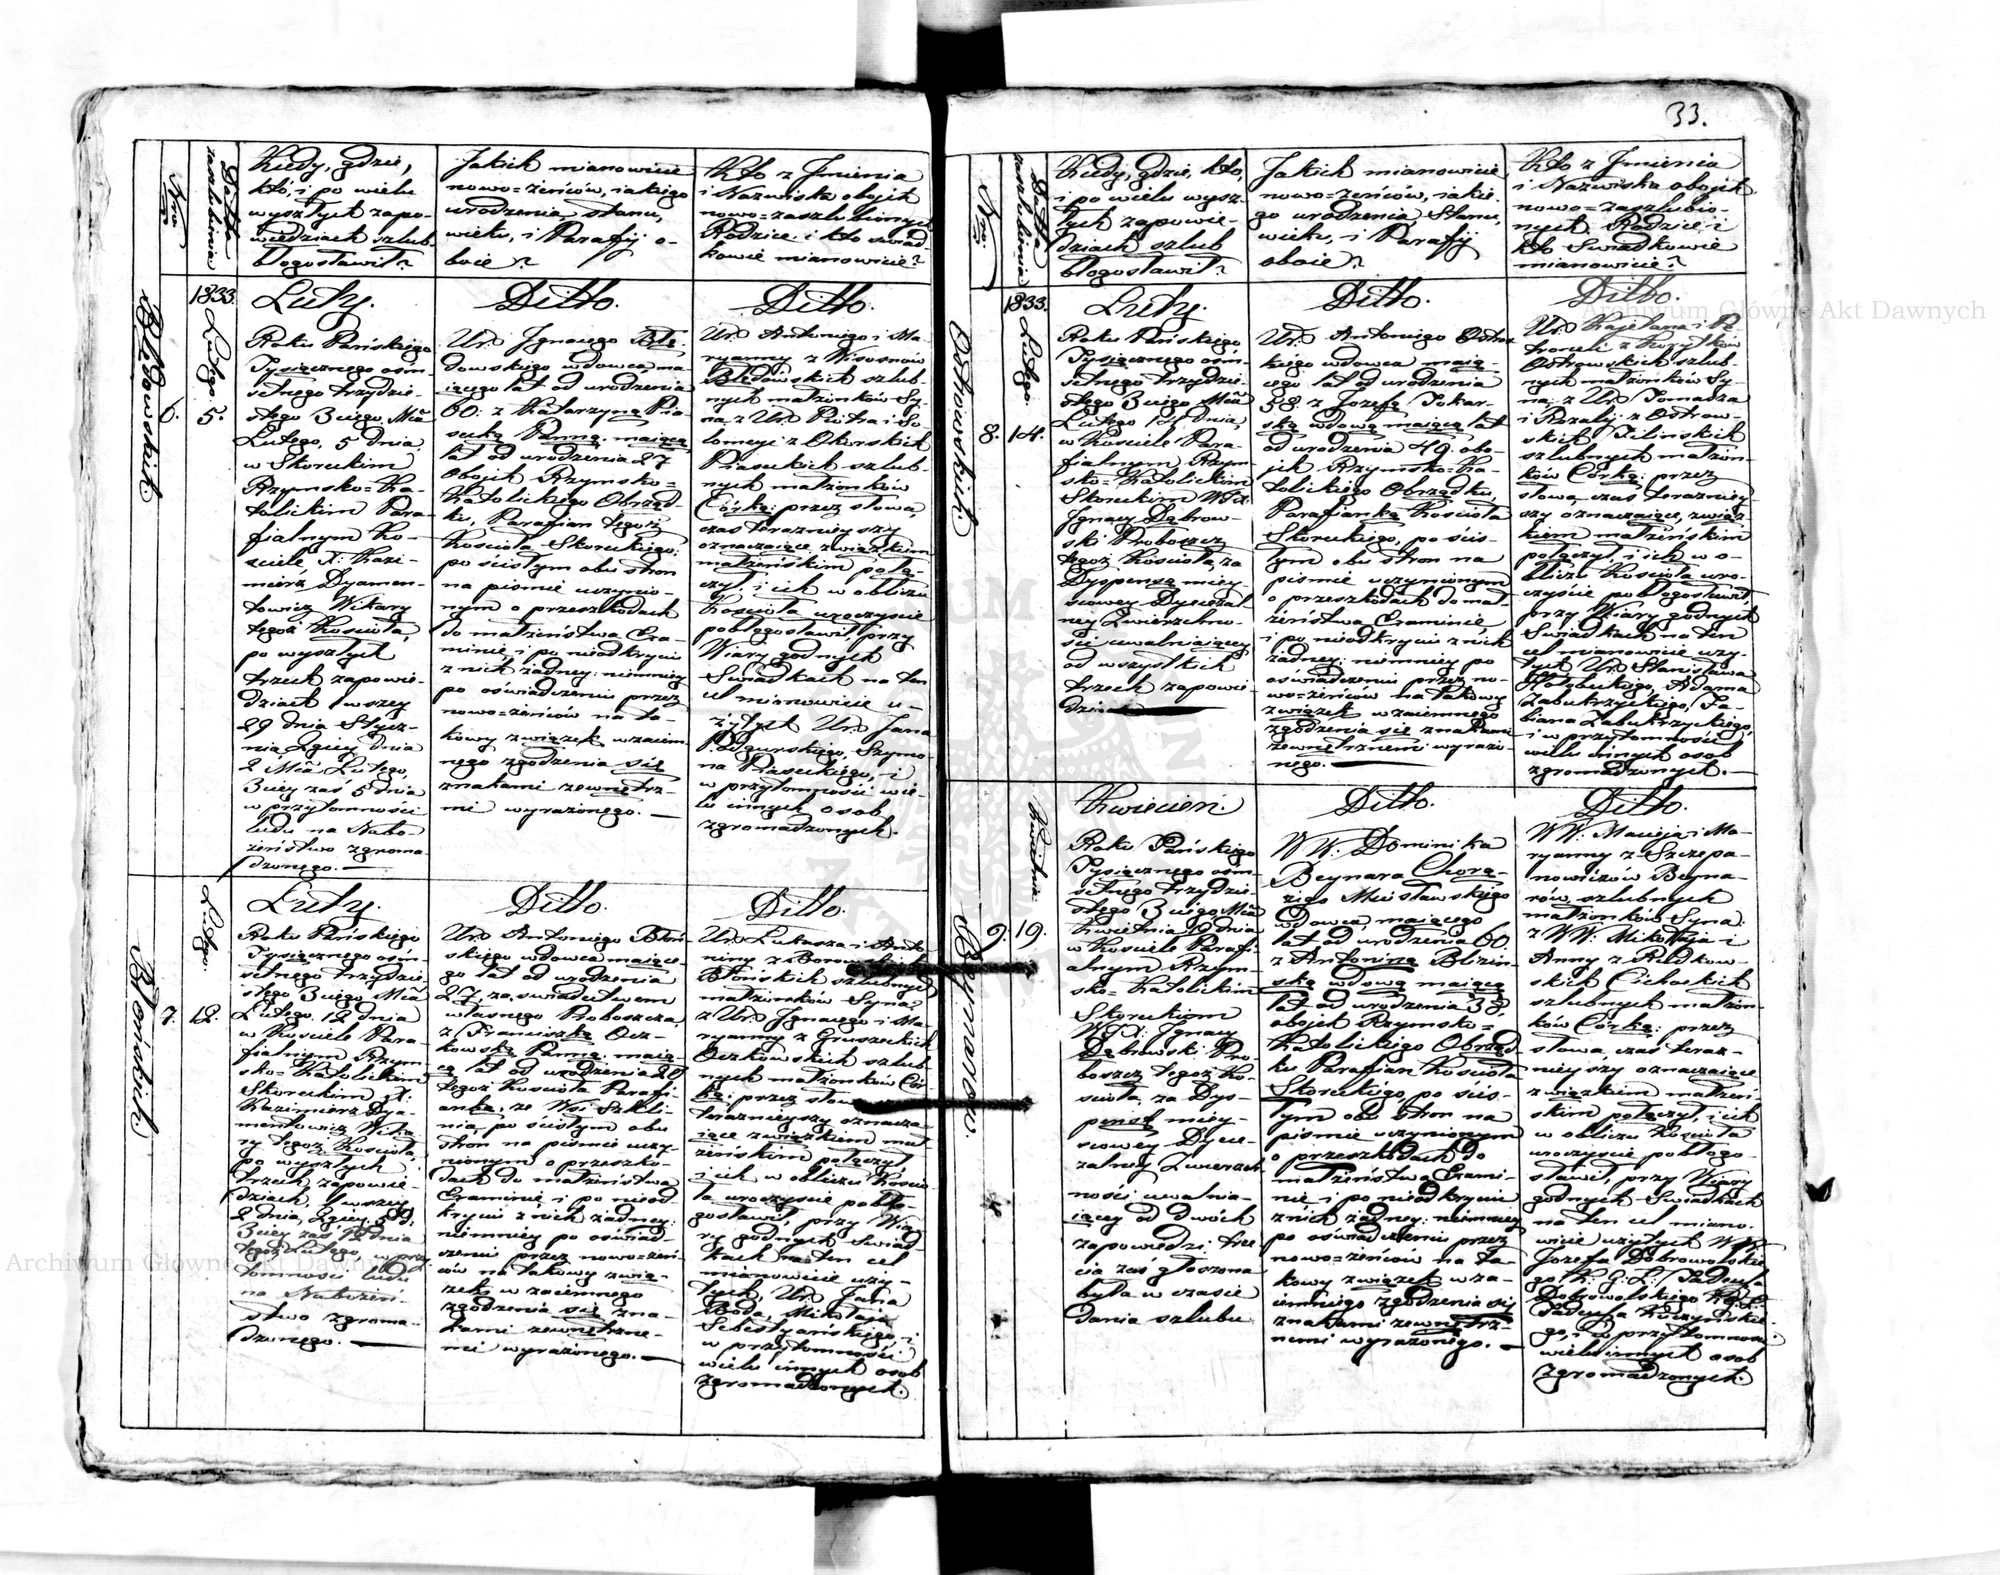 33.
Nro
Datta
zaszlubienia
Kiedy, gdzie,
kto, i po wielu
wyszłych zapo-
wiedziach szlub
błogosławił?
Jakich mianowicie
nowo=żeńców, iakiego
urodzenia, stanu,
wieku, i Parafij o-
boie?
Kto z Jmienia
i Nazwiska obojch
nowo=zaszlubionych
Rodzice i kto świad-
kowie mianowicie?
Błędowskich
6.
1833.
Lutego.
5.
Luty.
Roku Pańskiego
Tysiącznego ośm-
setnego trzydzie-
stego 3ciego, Mca
Lutego, 5 dnia,
w Skoreckim
Rzymsko=Ka-
tolickim Para-
fialnym Ko-
ściele X: Kazi-
mierz Dyamen-
towicz Wikary
tegoż Kościoła,
po wyszłych
trzech zapowie-
dziach 1wszey
29 dnia Stycz-
nia 2giey dnia
2 Mca Lutego,
3ciey zaś 5 dnia
w przytomności
ludu na Nabo-
żeństwo zgroma-
dzonego.—
Ditto.
Ur. Jgnacego Błę-
dowskiego wdowca ma-
iącego lat od urodzenia
60. z Katarzyną Pia-
secką Panną, maiącą
lat od urodzenia 27
obojch Rzymsko=
Katolickiego Obrząd-
ku, Parafian tegoż
Kościoła Skoreckiego:
po ścisłym obu stron
na piśmie uczynio-
nym o przeszkodach
do małżeństwa Exa-
minie, i po nieodkryciu
z nich żadney: niemniey
po oświadczeniu przez
nowo=żeńców na ta-
kowy związek wzaiem-
nego zgodzenia się
znakami zewnętrz-
mi wyrażonego.—
Ditto.
Ur. Antoniego i Ma-
ryanny z Wisosnów
Błędowskich szlub-
nych małżonków Sy-
na, z Ur. Piotra i So-
lomeyi z Okinskich
Piaseckich szlub-
nych małżonków
Córką: przez słowa,
czas teraznieyszy
oznaczaiące, związkiem
małżeńskim połą-
czył, i ich w obliczu
Kościoła uroczyscie
pobłogosławił, przy
Wiary godnych
Swiadkach na ten
cel mianowicie u-
żytych Ur. Jana
Podgurskiego, Szymo-
na Piaseckiego, i
w przytomności wie-
lu innych osob
zgromadzonych.
Błońskich.
7.
Lutego.
12.
Luty.
Roku Pańskiego
Tysiącznego ośm-
setnego trzydzie-
stego 3ciego Mca
Lutego 12 dnia
w Kościele Para-
fialnym Rzym-
sko=Katolickim
Skoreckim X:
Kazimierz Dya-
mentowicz Wika-
ry tegoż Kościoła
po wyszłych
trzech zapowie-
dziach, 1wszey
2 dnia, 2giey 5 d:
3ciey zaś 12 dnia
tegoż Lutego, w przy-
tomności ludu
na Nabożeń-
stwo zgroma-
dzonego.—
Ditto.
Ur. Antoniego Błoń-
skiego wdowca maiące-
go lat od urodzenia
27, za swiadectwem
własnego Proboszcza,
z Franciszką Ocz-
kowską Panną, maią-
cą lat od urodzenia 20
tegoż Kościoła Parafi-
anką, ze Wsi Szkli-
nia, po ścisłym obu
stron na piśmie uczy-
nionym o przeszko-
dach do małżeństwa
Examinie, i po nieod-
kryciu z nich żadney:
niemniey po oświad-
czeniu przez nowo=żeń-
ców na takowy zwią-
zek w zaiemnego
zgodzenia się zna-
kami zewnętrzne-
mi wyrażonego.—
Ditto.
Ur. Łukasza i Anto-
niny z
Błońskich szlubnych
małżonków Syna:
z Ur. Jgnacego i Ma-
ryanny z Gruszeckich
Oczkowskich szlub-
nych małżonków Cór-
ką: przez słowa
teraznieyszy oznacza-
iące związkiem mał-
żeńskim połączył,
i ich w obliczu Kościo-
ła uroczyscie pobło-
gosławił, przy Wia-
ry godnych Swiad-
kach na ten cel
mianowicie uży-
tych, Ur. Jana
Boda, Mikołaja
Sebestyańskiego, i
w przytomności
wielu innych osob
zgromadzonych.
Nro
Datta
zaszlubienia
Kiedy, gdzie, kto,
i po wielu wysz-
łych zapowie-
dziach szlub
błogosławił?
Jakich mianowicie
nowo=żeńców, iakie-
go urodzenia, Stanu,
wieku, i Parafij
oboie?
Kto z Jmienia
i Nazwiska obojch
nowo=zaszlubio-
nych, Rodzice, i
kto Swiadkowie
mianowicie?
Ostrowskich.
8.
1833.
Lutego.
14.
Luty.
Roku Pańskiego
Tysiącznego ośm-
setnego trzydzie-
stego 3ciego Mca
Lutego 14 dnia,
w Kościele Para-
fialnym Rzym-
sko=Katolickim
Skoreckim WJX.
Jgnacy Dąbrow-
ski Proboszcz
tegoż Kościoła, za
Dyspensą miey-
scowey Dyecezal-
ney Zwierzchno-
ści uwalniaiącey
od wszystkich
trzech zapowie-
dziach
Ditto.
Ur. Antoniego Ostrows-
kiego wdowca maią-
cego lat od urodzenia
58. z Jozefą Tokar-
ską wdową maiącą lat
od urodzenia 49. obo-
jch Rzymsko=Ka-
tolickiego Obrządku,
Parafianką Kościoła
Skoreckiego, po ścis-
łym obu stron na
piśmie uczynionym
o przeszkodach do mał-
żeństwa Examinie,
i po nieodkryciu z nich
żadney: niemniey po
oświadczeniu przez no-
wo=żeńców na takowy
związek w zaiemnego
zgodzenia się znakami
zewnętrznemi wyrażo-
nego.—
Ditto.
Ur. Kajetana i Pe-
troneli z
Ostrowskich szlub-
nych małżonków Sy-
na, z Ur. Tomasza
i Rozalij z Ostrow-
skich Zilińskich
szlubnych małżon-
ków Córką: przez
słowa, czas terazniey-
szy oznaczaiące, związ-
kiem małżeńskim
połączył, i ich w o-
bliczu Kościoła uro-
czyście pobłogosławił
przy Wiary godnych
Swiadkach na ten
cel mianowicie uży-
tych, Ur. Stanisława
Hołębeckiego, Adama
Zabukrzyckiego, Fa-
biana Zabukrzyckiego,
i w przytomności
wielu innych osob
zgromadzonych.—
Beynarow.
9.
Kwietnia.
19.
Kwiecień.
Roku Pańskiego
Tysiącznego ośm-
setnego trzydzie-
stego 3ciego, Mca
Kwietnia 19 dnia
w Kościele Parafi-
alnym Rzym-
sko=Katolickim
Skoreckim
WJX: Jgnacy
Dąbrowski Pro-
boszcz tegoż Ko-
ścioła, za Dys-
pensą miey-
scowey Dyece-
zalney Zwierzch-
ności uwalnia-
iącey od dwóch
zapowiedzi, trze-
cia zaś głoszona
była w czasie
dania szlubu.
Ditto.
WW: Dominika
Beynara Chorą-
żego Mścisławskiego
Wdowca, maiącego
lat od urodzenia 60.
z Antoniną Blizin-
ską wdową maiącą
lat od urodzenia 38,
obojch Rzymsko=
Katolickiego Obrząd-
ku Parafian Kościoła
Skoreckiego, po ścis-
łym obu stron na
piśmie uczynionym
o przeszkodach do
małżeństwa Exami-
nie, i po nieodkryciu
z nich żadney: niemniey
po oświadczeniu przez
nowo=żeńców na ta-
kowy związek w za-
iemnego zgodzenia się
znakami zewnętrz-
nemi wyrażonego.—
Ditto.
WW: Macieja i Ma-
ryanny z Szczepa-
nowiczów Beyna-
rów, szlubnych
małżonków Syna:
z WW: Mikołaja i
Anny z Rudkow-
skich Cichockich
szlubnych małżon-
ków Córką: przez
słowa, czas teraz-
nieyszy oznaczaiące
związkiem małżeń-
skim połączył, i ich
w obliczu Kościoła
uroczyscie pobłogo-
sławił, przy Wiary
godnych Swiadkach
na ten cel miano-
wicie użytych WW:
Jozefa Dobrowolskie-
go K: G: L: Tadeusza
Dobrowolskiego
Tadeusza
go, i w przytomności
wielu innych osob
zgromadzonych.
Archiwum Główne Akt Dawnych
Archiwum Główne Akt Dawnych